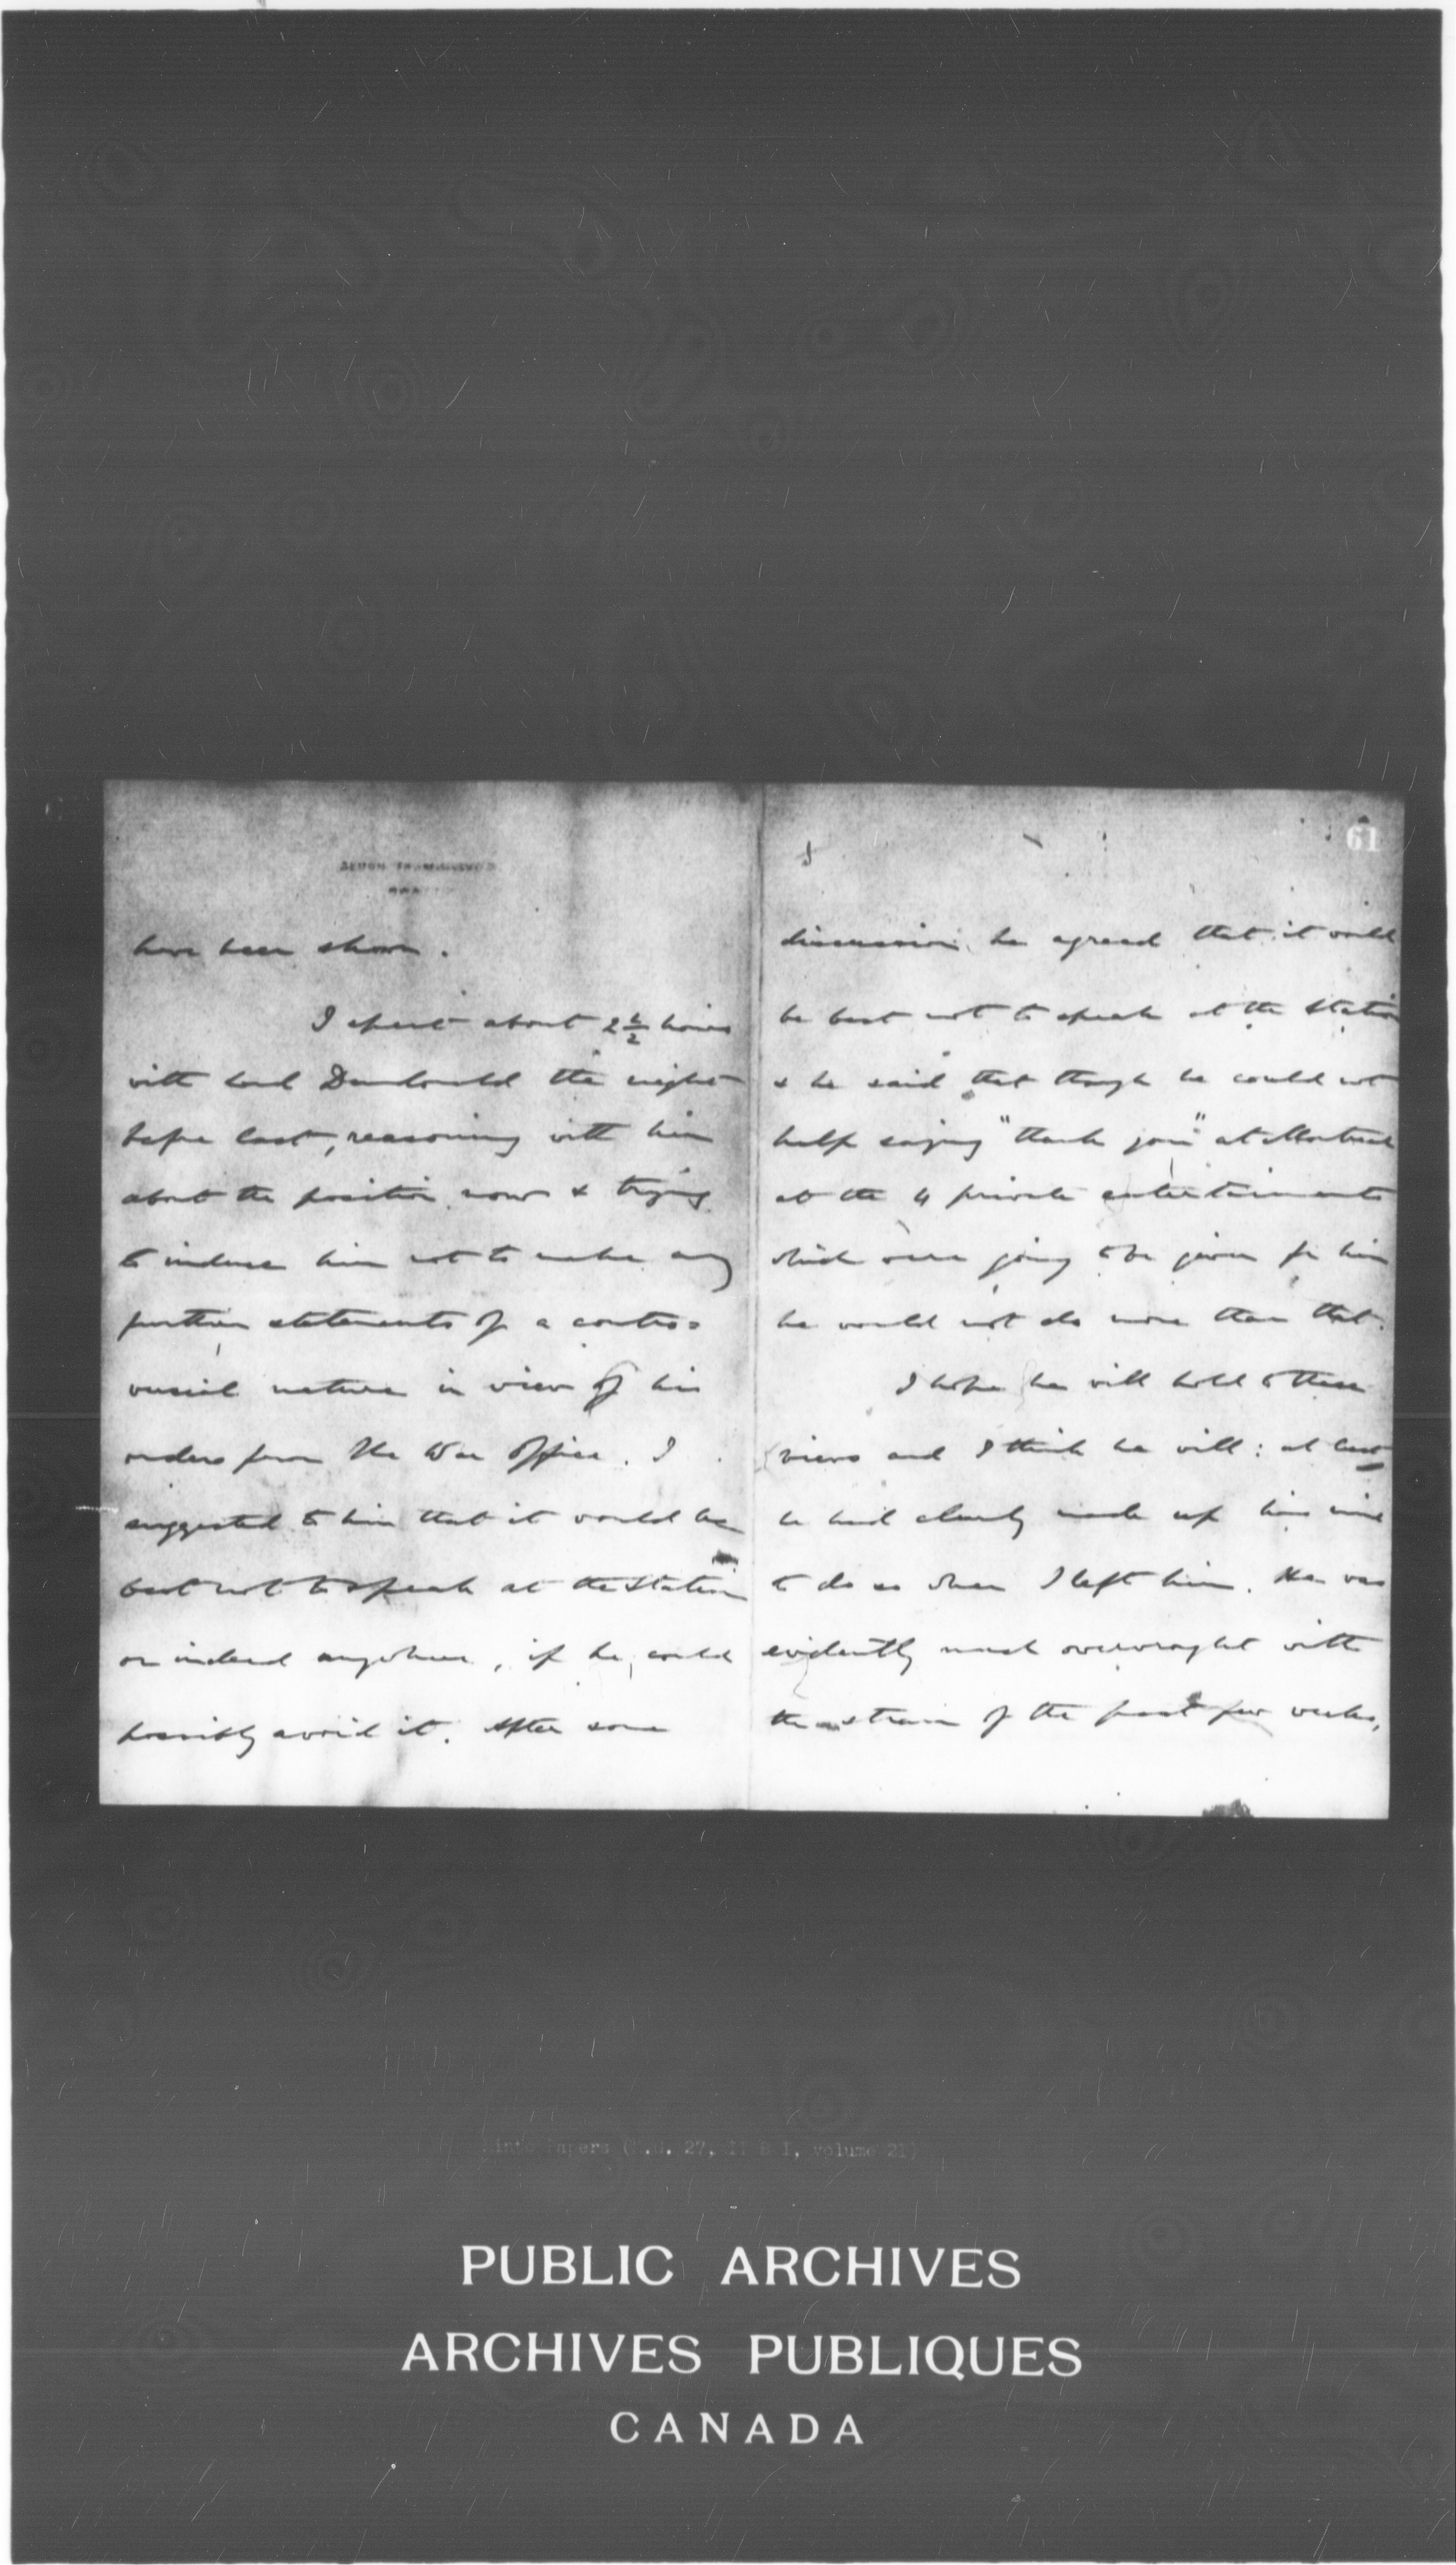 have been shown.
I spent about 2½ hours
with Lord Dundonald the night
before last, reasoning with him
about the position now & trying
to induce him not to make any
further statements of a contro=
versial nature in view of his
orders from the War Office. I
suggested to him that it would be
best not to speak at the Station
or indeed anywhere, if he could
possibly avoid it. After some
61
discussion he agreed that it would
be best not to speak at the Station
& he said that though he could not
help saying "thank you" at Montreal
at the 4 private entertainments
which were going to be given for him
he would not do more than that.
I hope he will hold to these
views and I think he will: at least
he had clearly made up his mind
to do so when I left him. He was
evidently much overwrought with
the strain of the past few weeks,
Minto Papers (M.G. 27, II B I, volume 21)
PUBLIC ARCHIVES
ARCHIVES PUBLIQUES
CANADA